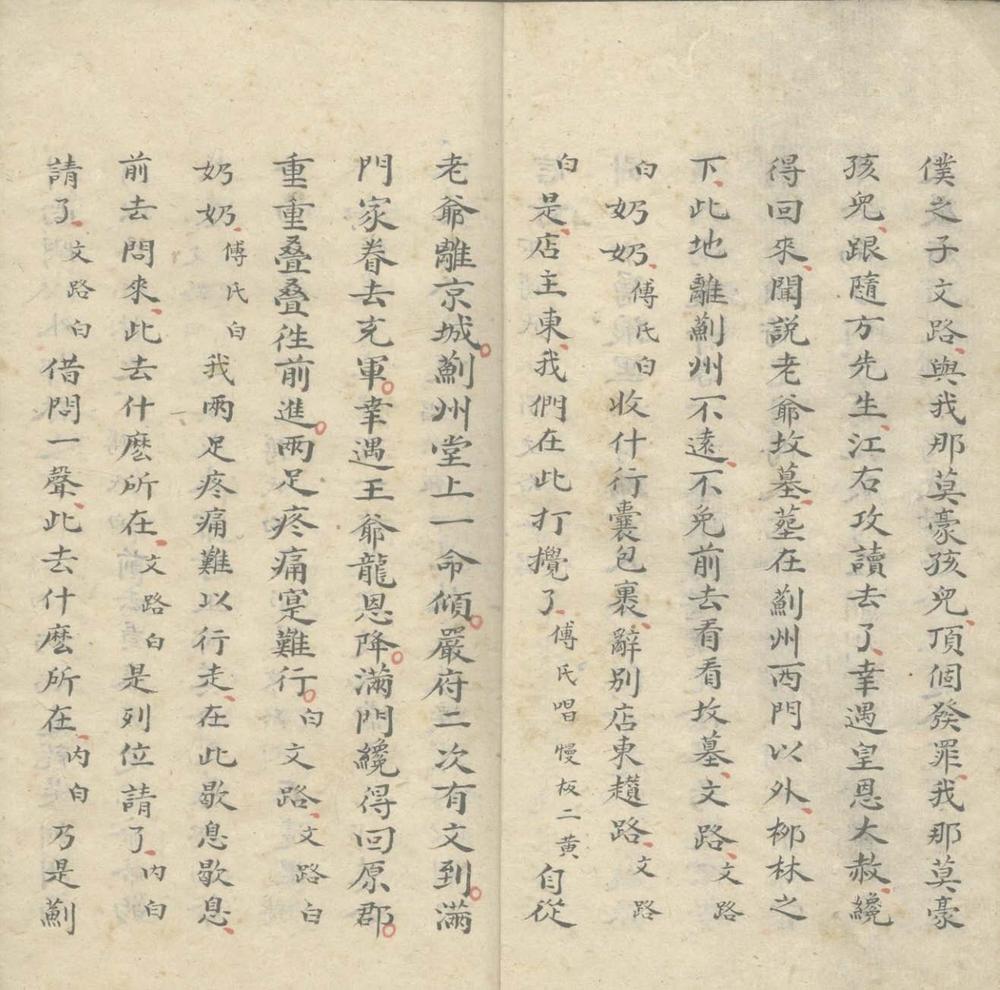 僕之子文路、與我那莫豪孩兒、頂個發罪、我那莫豪
孩兒、跟隨方先生、江右攻讀去了、幸遇皇恩大赦、纔
得回來、聞說老爺坟墓、塟在薊州西門以外、柳林之
下、此地離薊州不遠、不免前去看看坟墓、文路、文路
白奶奶、傅氏白收什行囊包裹、辭別店東趲路、文路
白是、店主東、我們在此打攪了、傅氏唱慢板二黃自從
老爺離京城。薊州堂上一命傾。嚴府二次有文到。滿
門家眷去充軍。幸遇王爺龍恩降。滿門纔得回原郡。
重重叠叠徃前進。兩足疼痛寔難行。白文路、文路白
奶奶、傅氏白我兩足疼痛難以行走、在此歇息歇息、
前去問來、此去什麽所在、文路白是列位請了、内白
請了、文路白借問一聲、此去什麽所在、内白乃是薊